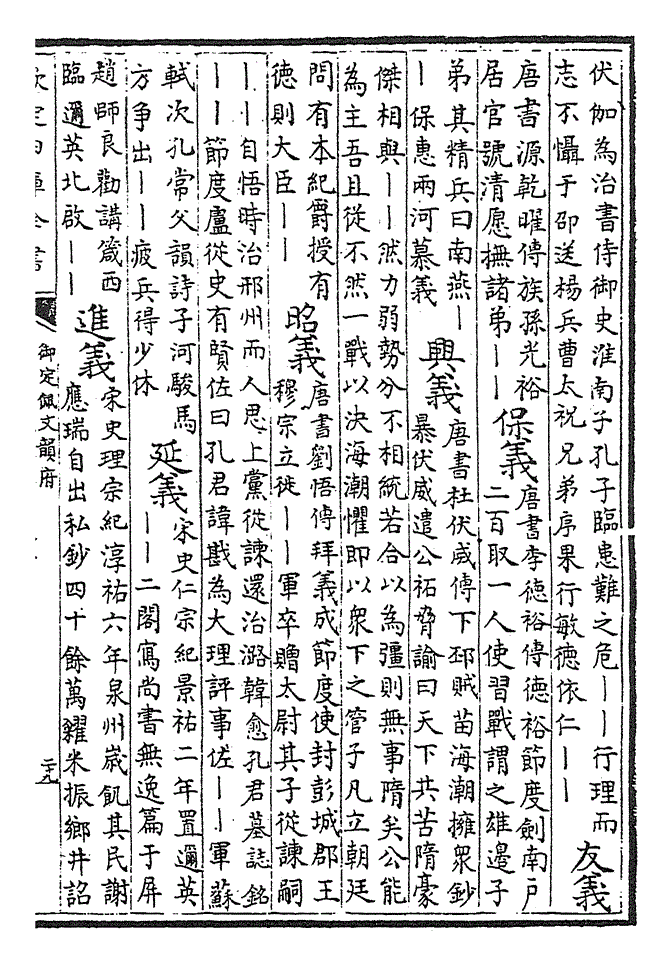 伏伽為治書侍御史淮南子孔子臨患難之危——行理而
志不懾于邵送楊兵曹太祝兄弟序果行敏徳依仁——
友義
唐書源乾曜傳族孫光裕
居官號清愿撫諸弟——
保義
唐書李德裕傳德裕節度劍南戶
二百取一人使習戰謂之雄邊子
弟其精兵曰南燕—
—保惠兩河慕義
興義
唐書杜伏威傳下邳賊苗海潮擁衆鈔
暴伏威遣公祏脅諭曰天下共苦隋豪
傑相與——然力弱勢分不相統若合以為彊則無事隋矣公能
為主吾且從不然一戰以決海潮懼即以衆下之管子凡立朝廷
問有本紀爵授有
徳則大臣——
昭義
唐書劉悟傳拜義成節度使封彭城郡王
穆宗立徙——軍卒贈太尉其子從諫嗣
——自悟時治邢州而人思上黨從諫還治潞韓愈孔君墓誌銘
——節度盧從史有賢佐曰孔君諱戡為大理評事佐——軍蘇
軾次孔常父韻詩子河駿馬
方争出——疲兵得少休
延義
宋史仁宗紀景祐二年置邇英
——二閣寫尚書無逸篇于屏
趙師良勸講箴西
臨邇英北啟——
進義
宋史理宗紀淳祐六年泉州嵗飢其民謝
應瑞自出私鈔四十餘萬糴米振鄉井詔
欽定四庫全書
御定佩文韻府